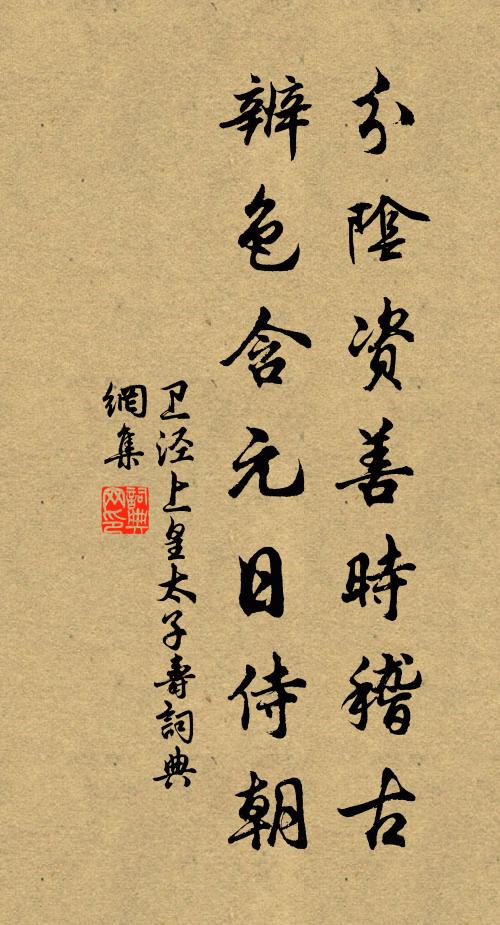 分陰資善時稽古
辨色含元日侍朝
卫泾上皇太子壽詞典
網集
詞典
网印